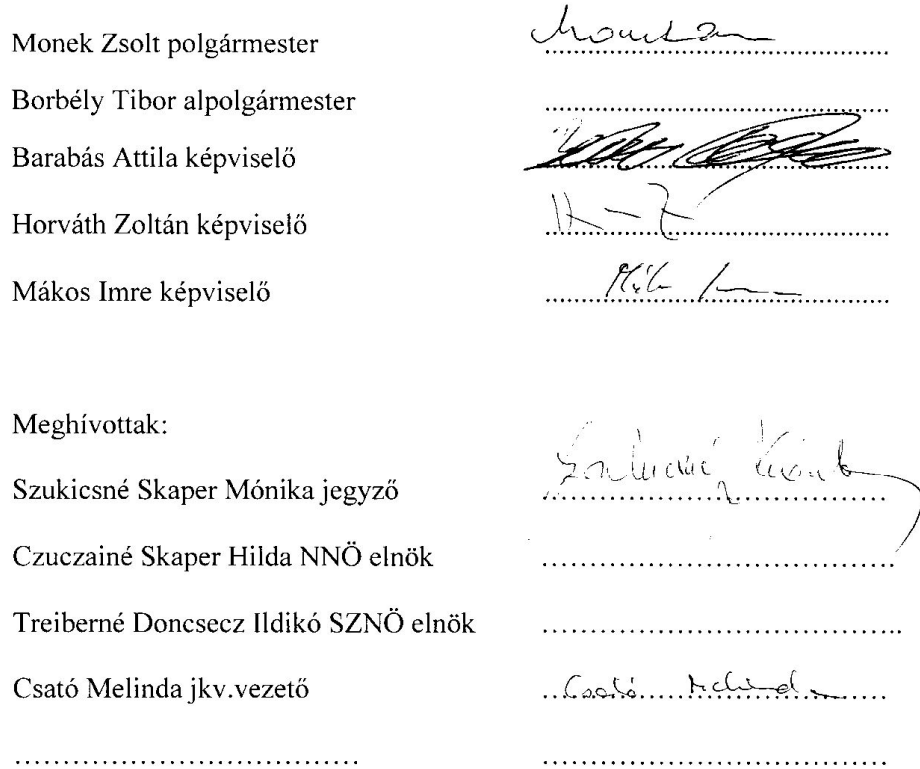 Monek Zsolt polgármester ........................................
Borbély Tibor alpolgármester ........................................
Barabás Attila képviselő ........................................
Horváth Zoltán képviselő H-Z
Mákos Imre képviselő ........................................
Meghívottak:
Szukicsné Skaper Mónika jegyző ........................................
Czuczainé Skaper Hilda NNÖ elnök ........................................
Treiberné Doncsecz Ildikó SZNÖ elnök ........................................
Csató Melinda jkv.vezető Csató Melinda
........................................ ........................................